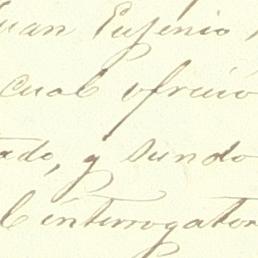 Juan Eugenio,
cual ofreció
tado, y siendo
l interrogator